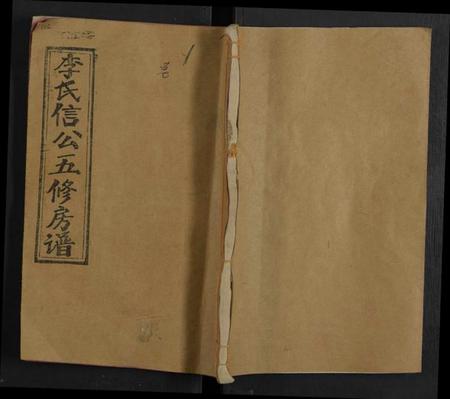 李氏信公五修房谱